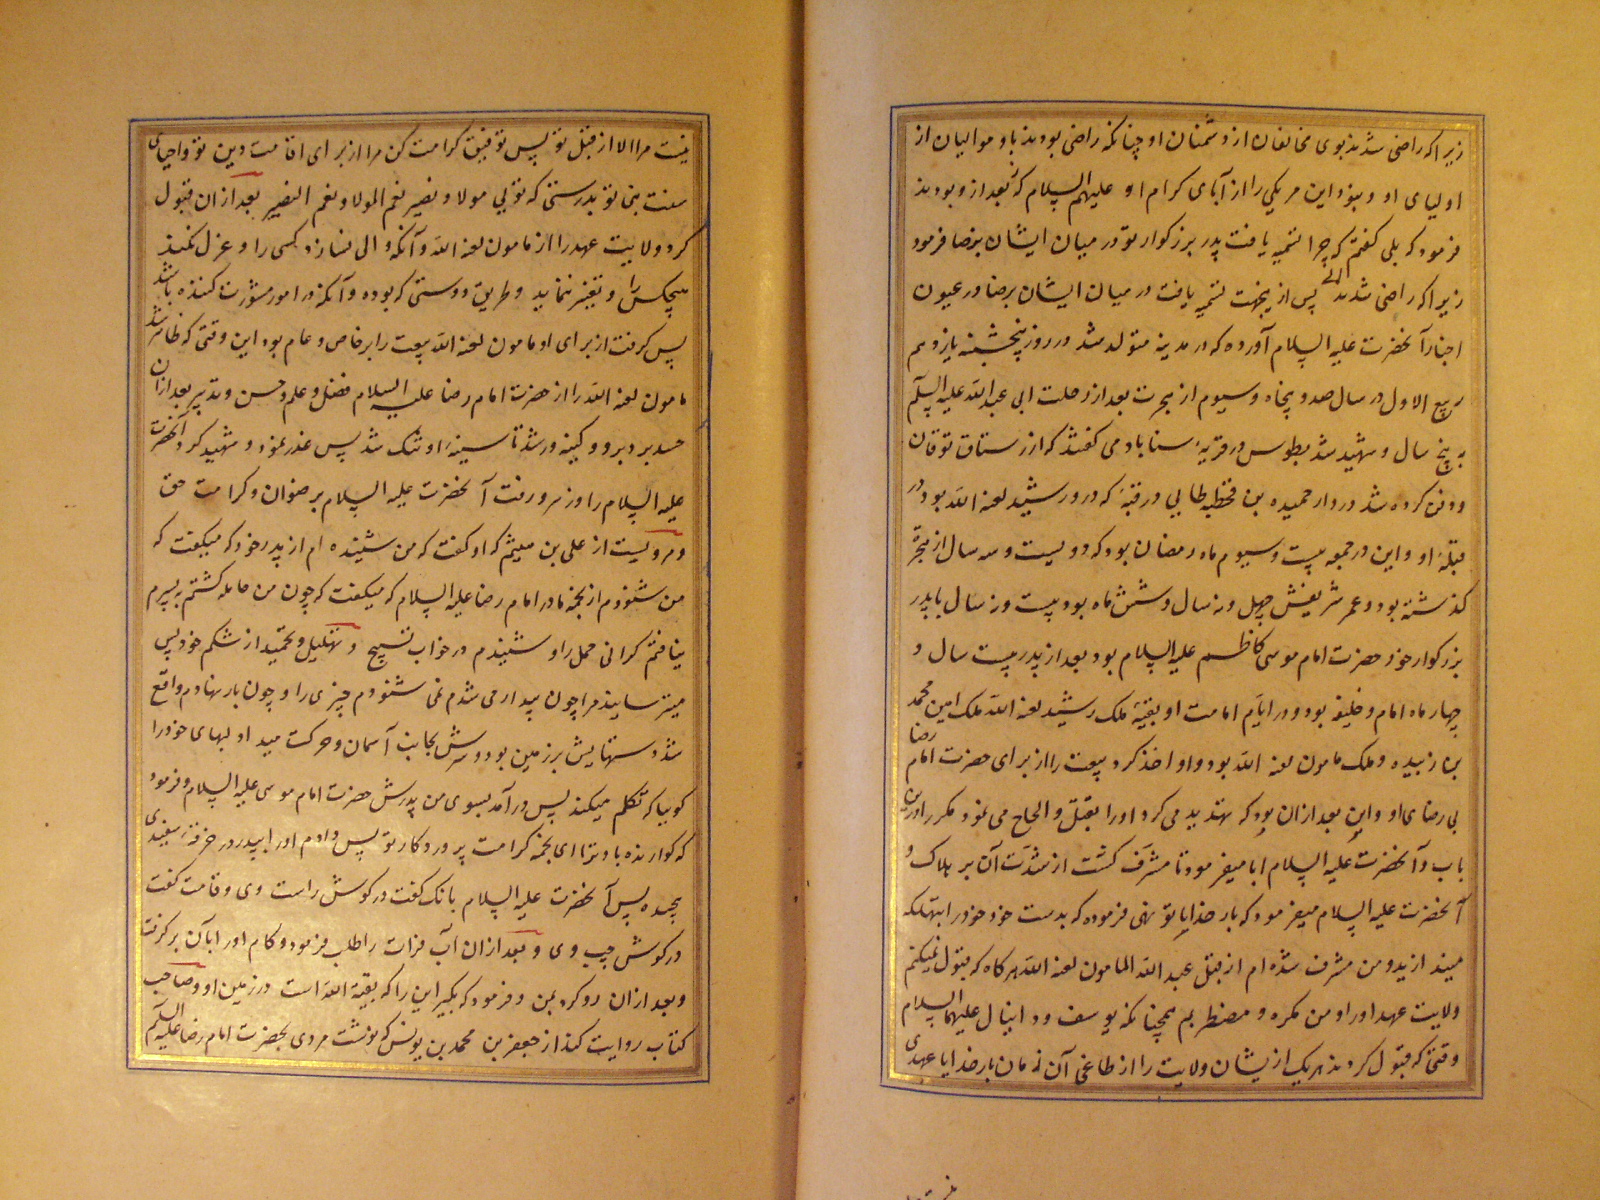 زیرا که راضی شدند بوی مخالفان از دشمنان او چنانکه راضی بودند باو موالیان از
اولیای او و نبود این مر یکی را از آبای کرام او علیهم السلام که بعد از و بودند
فرمود که بلی گفتم که چرا تسمیه یافت پدر بزرگوار تو در میان ایشان برضا فرمود
زیرا که راضی شدند الی پس از ینجهت تسمیه یافت در میان ایشان برضا و در عیون
اخبار آنحضرت علیه السلام آورده که در مدینه متولد شد در روز پنجشنبه یازدهم
ربیع الاول در سال صد و پنجاه و سیوم از هجرت بعد از رحلت ابی عبد الله علیه السلام
به پنج سال و شهید شد بطوس در قریهٔ سناباد می گفتند که از رستاق نوقان
و دفن کرده شد در دار حمیده بن قحطبه طایی در قبهٔ که در و رشید لعنه الله بود در
قبلهٔ او و این در جمعه بیست و سیوم ماه رمضان بود که دویست و سه سال از هجرة
گذشته بود و عمر شریفش چهل و نه سال و شش ماه بود بیست و نه سال با پدر
بزرگوار خود حضرت امام موسی کاظم علیه السلام بود و بعد از پدر بیست سال و
چهار ماه امام و خلیفه بود و در ایام امامت او بقیهٔ ملک رشید لعنه الله ملک امین محمد
بن زبیده و ملک مامون لعنه الله بود و او اخذ کرد بیعت را از برای حضرت امام رضا
بی رضای او و این بعد از ان بود که تهدید می کرد او را بقتل و الحاح می نمود مکرر درین
باب و آنحضرت علیه السلام ابا میفرمود تا مشرف گشت از شدت آن بر هلاک و
آنحضرت علیه السلام میفرمود که بار خدایا تو نهی فرموده که بدست خود خود را بتهلکه
میندازید و من مشرف شده ام از قبل عبد الله المامون لعنه الله هرگاه که قبول نمیکنم
ولایت عهد او را و من مکره و مضطرم همچنانکه یوسف و دانیال علیهما السلام
وقتی که قبول کردند هر یک از یشان ولایت را از طاغی آن زمان بار خدایا عهدی
نیست مرا الا از قبل تو پس توفیق کرامت کن مرا از برای اقامت دین تو و احیای
سنت نبی تو بدرستی که تویی مولا و نصیر نعم المولا و نعم النصیر بعد از ان قبول
کرد ولایت عهد را از مامون لعنه الله و آنکه والی نسازد کسی را و عزل نکند
هیچکس را و تغییر ننماید و طریق دوستی که بوده و آنکه در امور مشورت کننده باشد
پس گرفت از برای او مامون لعنه الله بیعت را بر خاص و عام بود این وقتی که ظاهر شد
مامون لعنه الله را از حضرت امام رضا علیه السلام فضل و علم و حسن و تدبیر بعد از ان
حسد برد برو و کینه ور شد تا سینهٔ او تنگ شد پس غدر نمود و شهید کرد آنحضرت
علیه السلام را و زهر و رفت آنحضرت علیه السلام برضوان و کرامت حق
و مرویست از علی بن میثم که او گفت که من شنیده ام از پدر خود که میگفت که
من شنودم از نجمه مادر امام رضا علیه السلام که میگفت که چون من حامله گشتم به پسرم
نیافتم گرانی حمل را و شنیدم در خواب تسبیح و تهلیل و تحمید از شکم خود پس
میترسانید مرا چون بیدار می شدم نمی شنودم چیزی را و چون بار نهادم واقع
شد دستهایش بر زمین بود و سرش بجانب آسمان و حرکت میداد لبهای خود را
گوییا که تکلم میکند پس در آمد بسوی من پدرش حضرت امام موسی علیه السلام و فرمود
که گوارنده باد ترا ای نجمه کرامت پروردگار تو پس دادم او را بپدر در خرقهٔ سفیدی
پیچیده پس آنحضرت علیه السلام بانک گفت در گوش راست وی و قامت گفت
در گوش چپ وی و بعد از ان آب فرات را طلب فرمود و کام او را بآن برگرفت
و بعد از ان رو کرد بمن و فرمود که بگیر این را که بقیة الله است در زمین او و صاحب
کتاب روایت کند از جعفر بن محمد بن یونس که نوشت مردی بحضرت امام رضا علیه السلام